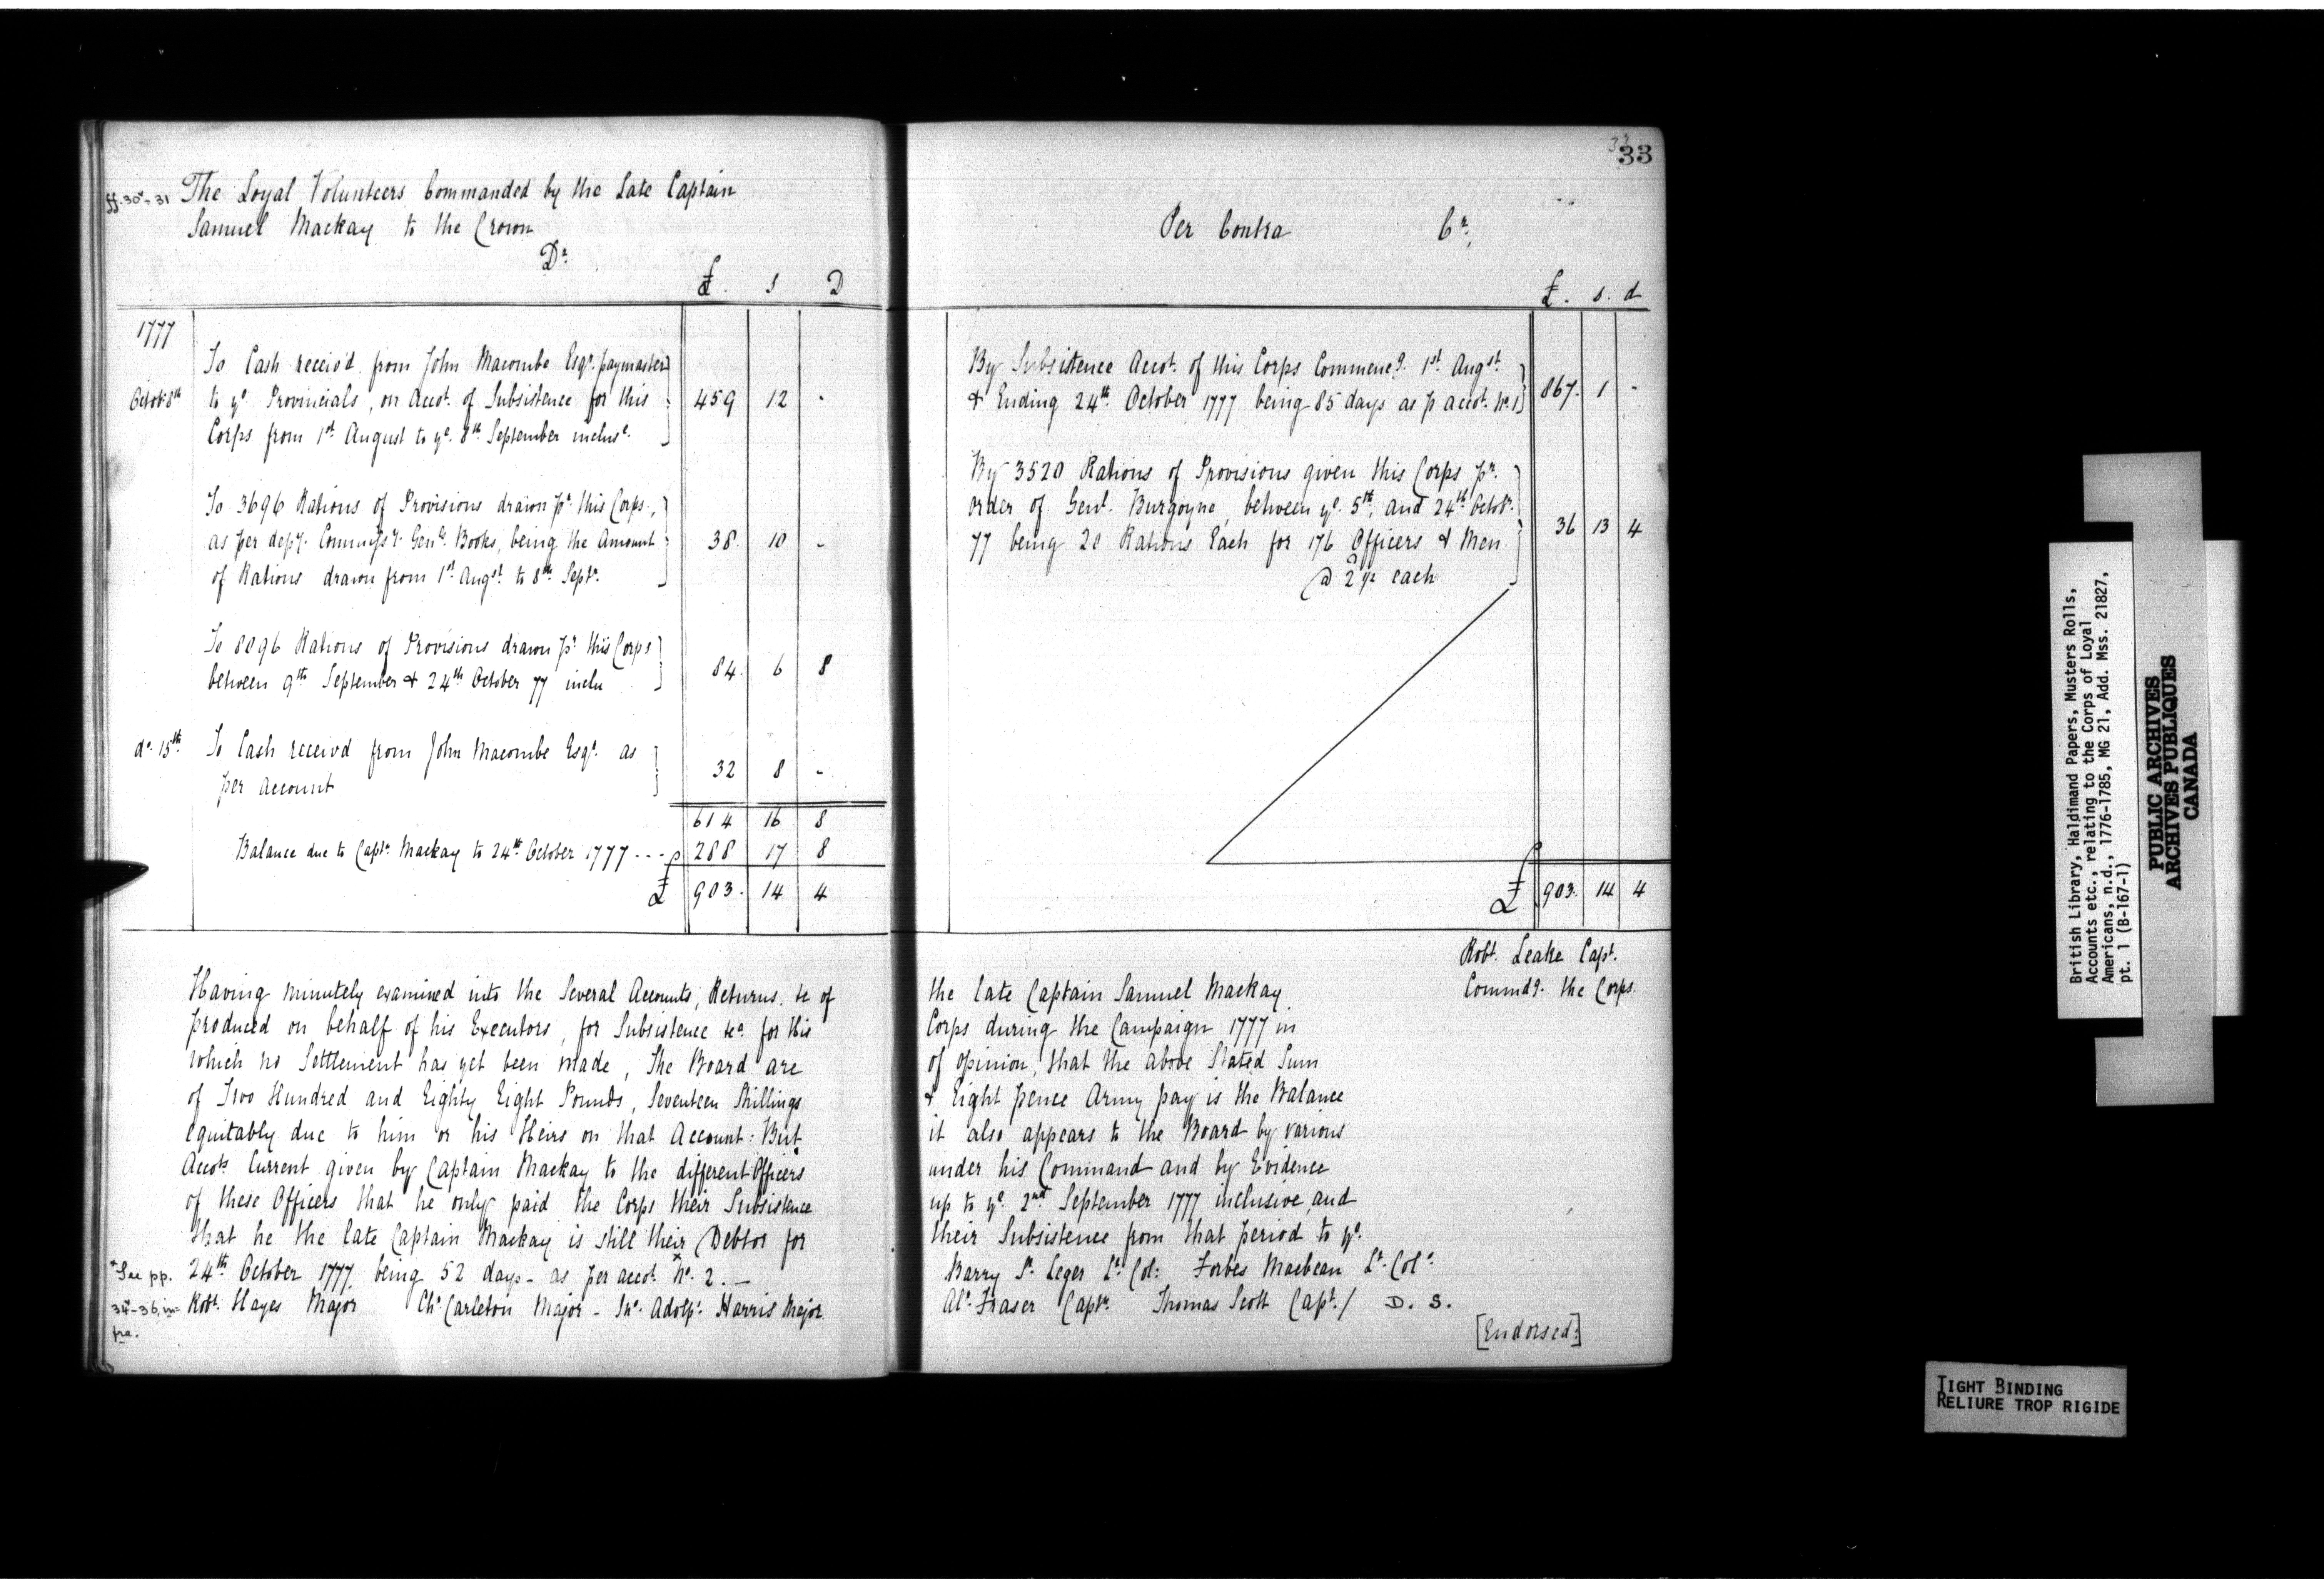 33
33
ff. 30v-31 The Loyal Volunteers Commanded by the Late Captain
Samuel Mackay to the Crown
Dr.
£. s D
1777
To Cash receiv'd from John Macombe Esqr. paymaster
Octob. 8th to ye Provincials, on Accot. of Subsistence for this 459 12 -
Corps from 1st August to ye. 8th September incluse.
To 3696 Rations of Provisions drawn pr. this Corps,
as per depy. Commissy. Genls. Books, being the Amount 38. 10 -
of Rations drawn from 1st Augst. to 8th Septr.
To 8096 Rations of Provisions drawn pr. this Corps
between 9th September & 24th October 77 inclu 84. 6 8
do. 15th. To Cash receivd from John Macombe Esqr. as
per Account 32 8 -
614 16 8
Balance due to Captn. Mackay to 24th October 1777 --- 288 17 8
£ 903. 14 4
Per Contra Cr.
£. s. d
By Subsistence Accot. of this Corps Commencg. 1st Augst.
& Ending 24th October 1777 being 85 days as p accot. No. 1 867. 1 -
By 3520 Rations of Provisions given this Corps pr.
order of Genl. Burgoyne, between ye. 5th, and 24th Octobr.
77 being 20 Rations Each for 176 Officers & Men 36 13 4
@ 2 1/2 D each
£ 903. 14 4
Robt. Leake Capt.
Commdg. the Corps.
Having minutely examined into the Several Accounts, Returns, &c of the late Captain Samuel Mackay
produced on behalf of his Executors, for Subsistence &ca. for this Corps during the Campaign 1777 in
which no Settlement has yet been made, The Board are of opinion, that the above Stated Sum
of Two Hundred and Eighty Eight Pounds, Seventeen Shillings & Eight pence Army pay is the Balance
equitably due to him or his Heirs on that Account: But it also appears to the Board by various
Accots Current given by Captain Mackay to the different Officers under his Command and by Evidence
of these Officers that he only paid the Corps their Subsistence up to ye. 2nd September 1777 inclusive, and
that he the late Captain Mackay is still their Debtor for their Subsistence from that period to ye.
24th October 1777, being 52 days - as per accot. No. 2. -
* See pp.
34v-36, in=
fra.
Barry St. Leger Lt. Col: Forbes Macbean Lt. Col.
Robt. Hayes Major Chr. Carleton Major - Jno. Adolps. Harris Major. Alr. Fraser Captn. Thomas Scott Capt. / D. S.
[Endorsed:]
British Library, Haldimand Papers, Musters Rolls,
Accounts etc., relating to the Corps of Loyal
Americans, n.d., 1776-1785, MG 21, Add. Mss. 21827,
pt. 1 (B-167-1)
PUBLIC ARCHIVES
ARCHIVES PUBLIQUES
CANADA
TIGHT BINDING
RELIURE TROP RIGIDE